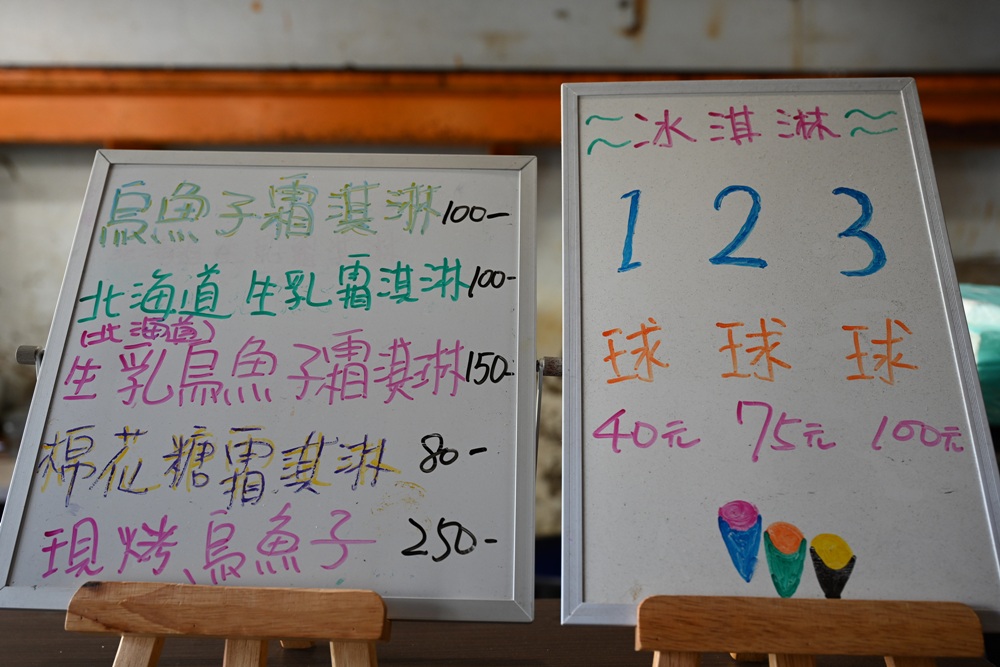 烏魚子霜淇淋100-
北海道 生乳霜淇淋100-
(北海道)
生乳烏魚子霜淇淋150-
棉花糖霜淇淋 80-
現烤烏魚子 250-
冰淇淋
1 2 3
球 球 球
40元 75元 100元